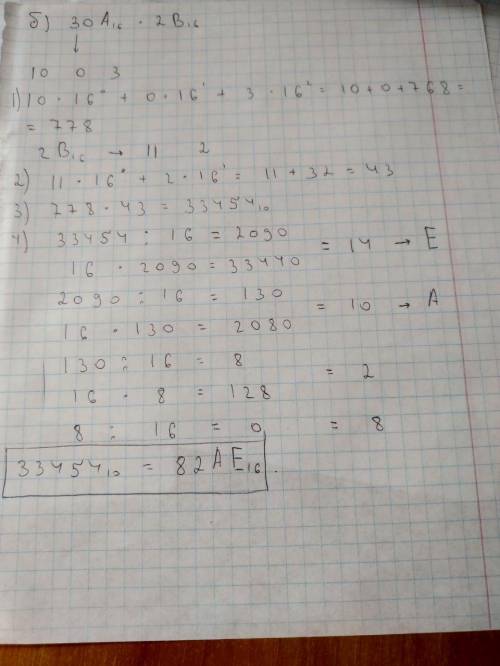 б) 30A₁₆ · 2B₁₆
↓
10 0 3
1) 10 · 16⁰ + 0 · 16¹ + 3 · 16² = 10 + 0 + 768 =
= 778
2B₁₆ → 11 2
2) 11 · 16⁰ + 2 · 16¹ = 11 + 32 = 43
3) 778 · 43 = 33454₁₀
4) 33454 : 16 = 2090
= 14 → E
16 · 2090 = 33440
2090 : 16 = 130
= 10 → A
16 · 130 = 2080
130 : 16 = 8
= 2
16 · 8 = 128
8 : 16 = 0 = 8
33454₁₀ = 82AE₁₆.